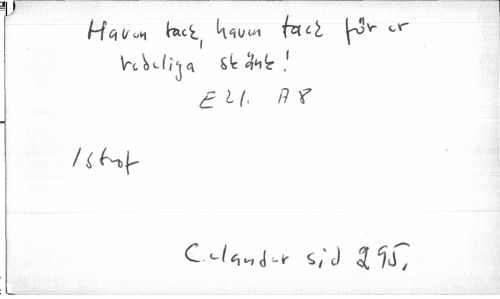 Haven tack, haven tack för er
redeliga skänk!
E 21. A 8
1 strof
Celander sid 295.